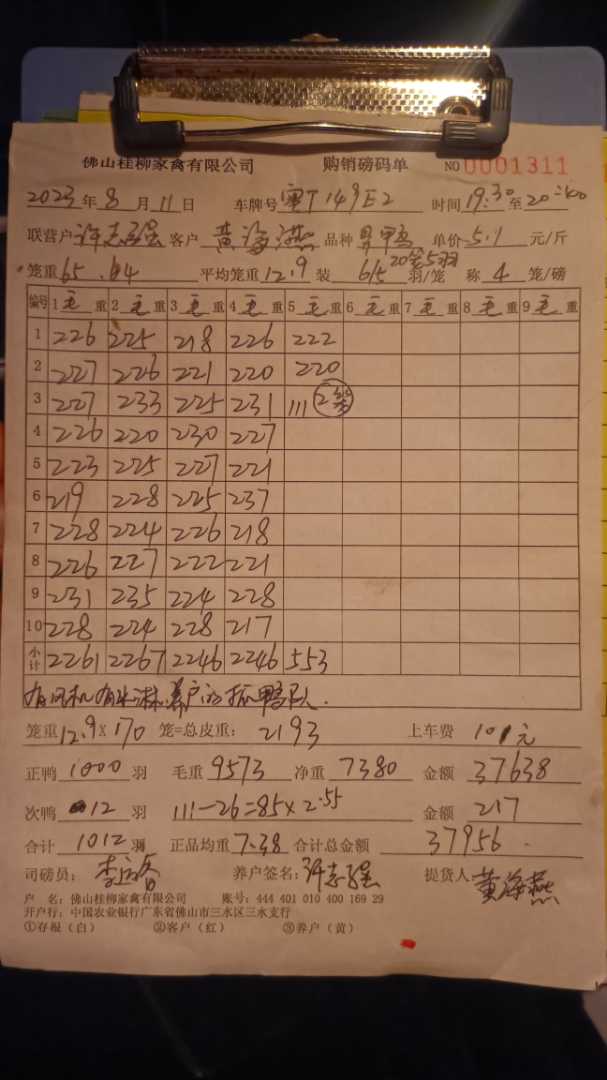 佛山桂柳家禽有限公司 购销磅码单 NO 0001311
2023年8月11日 车牌号 粤T149E2 时间 19:30 至 20:40
联营户 许志强 客户 黄海燕 品种 品鸭 单价 5.1 元/斤
20笼5羽
笼重 65.64 平均笼重 12.9 装 6/5 羽/笼 称 4 笼/磅
编号 1 毛 重 2 毛 重 3 毛 重 4 毛 重 5 毛 重 6 毛 重 7 毛 重 8 毛 重 9 毛 重
1 226 225 218 226 222
2 227 226 221 220 220
3 227 233 225 231 111 2笼
4 226 220 230 227
5 223 225 227 221
6 219 228 225 237
7 228 224 226 218
8 226 227 222 221
9 231 235 224 228
10 228 224 228 217
小计 2261 2267 2246 2246 553
有风机有水淋.养户的抓鸭队.
笼重 12.9 × 170 笼=总皮重: 2193 上车费 101元
正鸭 1000 羽 毛重 9573 净重 7380 金额 37638
次鸭 12 羽 111-26=85×2.55 金额 217
合计 1012 羽 正品均重 7.38 合计总金额 37956.
司磅员: 养户签名: 许志强 提货人 黄海燕
户 名: 佛山桂柳家禽有限公司 账号: 444 401 010 400 169 29
开户行: 中国农业银行广东省佛山市三水区三水支行
①存根(白) ②客户(红) ③养户(黄)